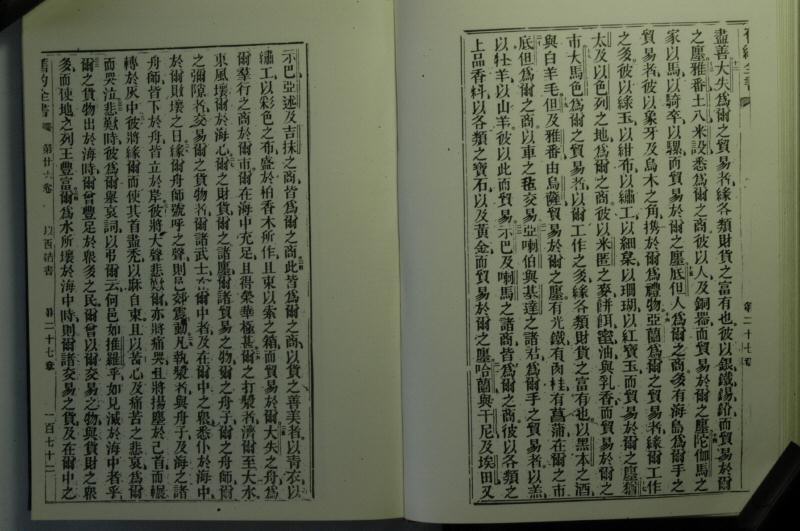 盡善大失爲爾之貿易者緣各類財貨之富有也彼以銀鐵錫鉛而貿易於爾
之廛雅番土八米設悉爲爾之商彼以人及銅器而貿易於爾之廛陀伽馬之
家以馬以騎卒以騾而貿易於爾之廛底但人爲爾之商多有海島爲爾手之
貿易者彼以象牙及烏木之角携於爾爲禮物亞蘭爲爾之貿易者緣爾工作
之多彼以綠玉以紺布以繡工以細枲以珊瑚以紅寶玉而貿易於爾之廛猶
太及以色列之地爲爾之商彼以米匿之麥餅餌蜜油與乳香而貿易於爾之
市大馬色爲爾之貿易者以爾工作之多緣各類財貨之富有也以黑本之酒
與白羊毛但及雅番由烏薩貿易於爾之廛有光鐵有肉桂有菖蒲在爾之市
底但爲爾之商以車之毯交易亞喇伯與基達之諸君爲爾手之貿易者以羔
以牡羊以山羊彼以此而貿易示巴及喇馬之諸商皆爲爾之商彼以各類之
上品香料以各類之寶石以及黃金而貿易於爾之廛哈蘭與干尼及埃田又
示巴亞述及吉抹之商皆爲爾之商此皆爲爾之商以貨之善美者以青衣以
繡工以彩色之布盛於柏香木所作且束以索之箱而貿易於爾大失之舟爲
爾羣行之商於爾市爾在海中充足且得榮華極甚爾之打槳者濟爾至大水
東風壞爾於海心爾之財貨爾之諸廛爾諸貿易之物爾之舟子爾之舟師爾
之彌隙者交易爾之貨物者爾諸武士在爾中者及在爾中之眾悉仆於海中
於爾敗壞之日緣爾舟師號呼之聲則邑郊震動凡執槳者與舟子及海之諸
舟師皆下於舟皆立於岸彼將大聲悲歎爾亦將痛哭且將揚塵於己首而輾
轉於灰中彼將緣爾而使其首盡禿以麻自束且以苦心及痛苦之悲哀爲爾
而哭泣悲歎時彼爲爾舉哀詞以弔爾云何邑如推羅乎如見滅於海中者乎
爾之貨物出於海時爾曾豐足於眾多之民爾曾以爾交易之物與貨財之眾
多而使地之列王豐富爾爲水所壞於海中時則爾諸交易之貨及在爾中之
舊約全書 第廿六卷 以西結書 第二十七章 一百七十二